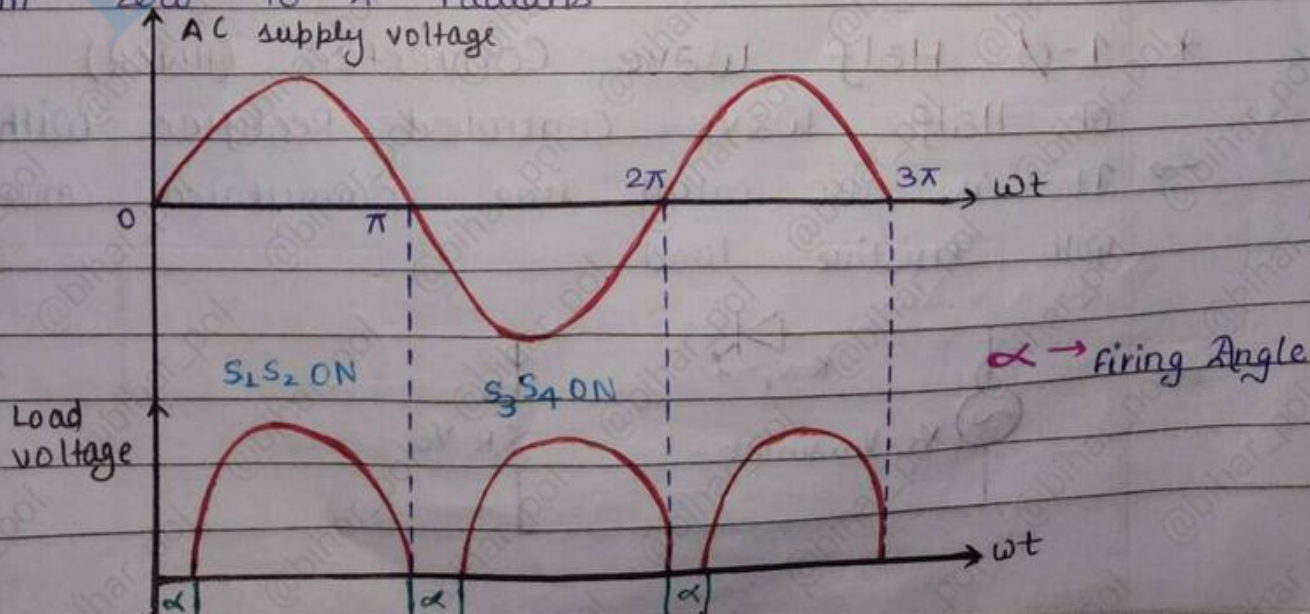 zero to π radians
AC supply voltage
0
π
2π
3π
ωt
S1S2 ON
S3S4 ON
α → firing Angle
Load
voltage
ωt
α
α
α
@bihar_pol